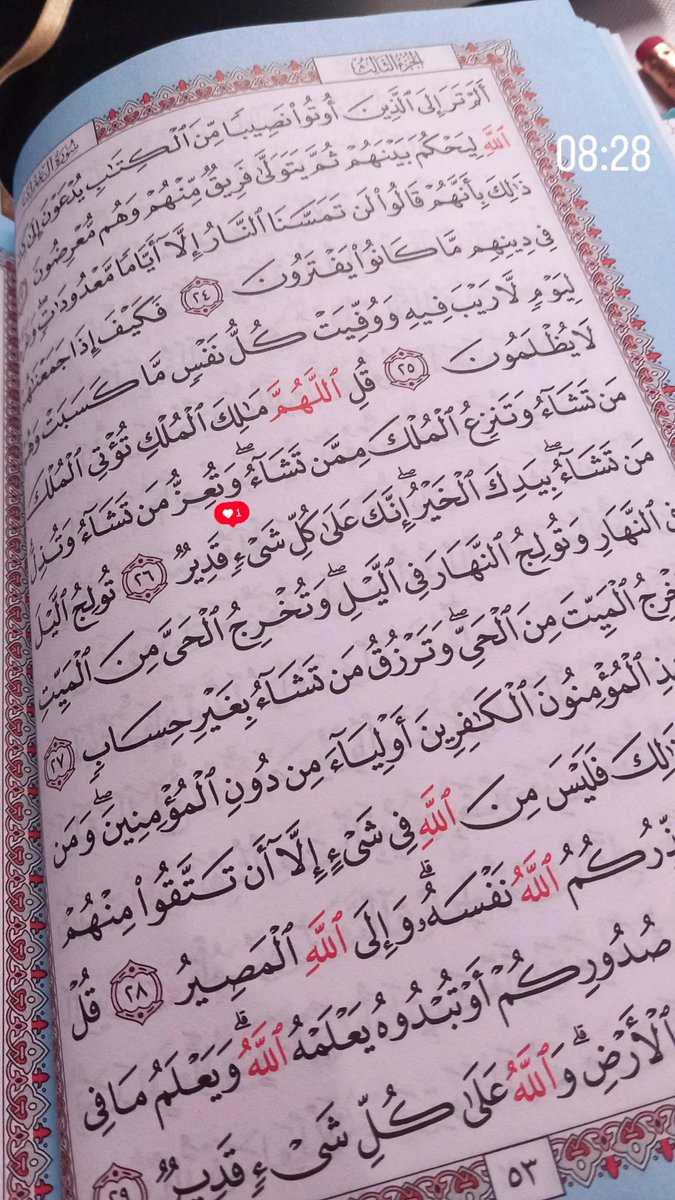 الجزء الثالث
سورة آل عمران
08:28
أَلَمْ تَرَ إِلَى ٱلَّذِينَ أُوتُوا۟ نَصِيبًا مِّنَ ٱلْكِتَٰبِ يُدْعَوْنَ إِلَىٰ
ٱللَّهِ لِيَحْكُمَ بَيْنَهُمْ ثُمَّ يَتَوَلَّىٰ فَرِيقٌ مِّنْهُمْ وَهُم مُّعْرِضُونَ
ذَٰلِكَ بِأَنَّهُمْ قَالُوا۟ لَن تَمَسَّنَا ٱلنَّارُ إِلَّآ أَيَّامًا مَّعْدُودَٰتٍ ۖ
فِى دِينِهِم مَّا كَانُوا۟ يَفْتَرُونَ ٢٤ فَكَيْفَ إِذَا جَمَعْنَٰهُمْ
لِيَوْمٍ لَّا رَيْبَ فِيهِ وَوُفِّيَتْ كُلُّ نَفْسٍ مَّا كَسَبَتْ وَهُمْ
لَا يُظْلَمُونَ ٢٥ قُلِ ٱللَّهُمَّ مَٰلِكَ ٱلْمُلْكِ تُؤْتِى ٱلْمُلْكَ
مَن تَشَآءُ وَتَنزِعُ ٱلْمُلْكَ مِمَّن تَشَآءُ ۖ وَتُعِزُّ مَن تَشَآءُ وَتُذِلُّ
مَن تَشَآءُ ۖ بِيَدِكَ ٱلْخَيْرُ ۖ إِنَّكَ عَلَىٰ كُلِّ شَىْءٍ قَدِيرٌ ٢٦ تُولِجُ ٱلَّيْلَ
1
فِى ٱلنَّهَارِ وَتُولِجُ ٱلنَّهَارَ فِى ٱلَّيْلِ ۖ وَتُخْرِجُ ٱلْحَىَّ مِنَ ٱلْمَيِّتِ
ٱلْمَيِّتَ مِنَ ٱلْحَىِّ ۖ وَتَرْزُقُ مَن تَشَآءُ بِغَيْرِ حِسَابٍ ٢٧
ٱلْمُؤْمِنُونَ ٱلْكَٰفِرِينَ أَوْلِيَآءَ مِن دُونِ ٱلْمُؤْمِنِينَ ۖ وَمَن
ذَٰلِكَ فَلَيْسَ مِنَ ٱللَّهِ فِى شَىْءٍ إِلَّآ أَن تَتَّقُوا۟ مِنْهُمْ
ٱللَّهُ نَفْسَهُۥ ۗ وَإِلَى ٱللَّهِ ٱلْمَصِيرُ ٢٨ قُلْ
صُدُورِكُمْ أَوْ تُبْدُوهُ يَعْلَمْهُ ٱللَّهُ ۗ وَيَعْلَمُ مَا فِى
ٱلْأَرْضِ ۗ وَٱللَّهُ عَلَىٰ كُلِّ شَىْءٍ قَدِيرٌ ٢٩
٥٣